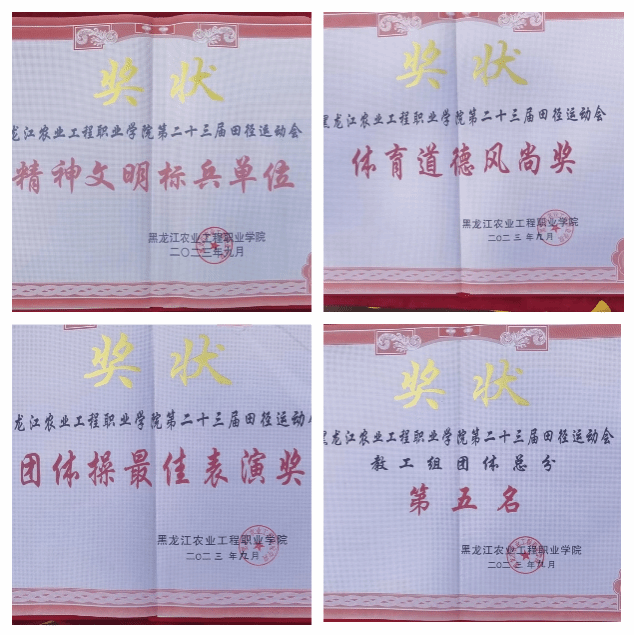 奖状
龙江农业工程职业学院第二十三届田径运动会
精神文明标兵单位
黑龙江农业工程职业学院
二〇二三年九月
奖状
黑龙江农业工程职业学院第二十三届田径运动会
体育道德风尚奖
黑龙江农业工程职业学院
二〇二三年九月
奖状
龙江农业工程职业学院第二十三届田径运动
团体操最佳表演奖
黑龙江农业工程职业学院
二〇二三年九月
奖状
黑龙江农业工程职业学院第二十三届田径运动会
教工组团体总分
第五名
黑龙江农业工程职业学院
二〇二三年九月